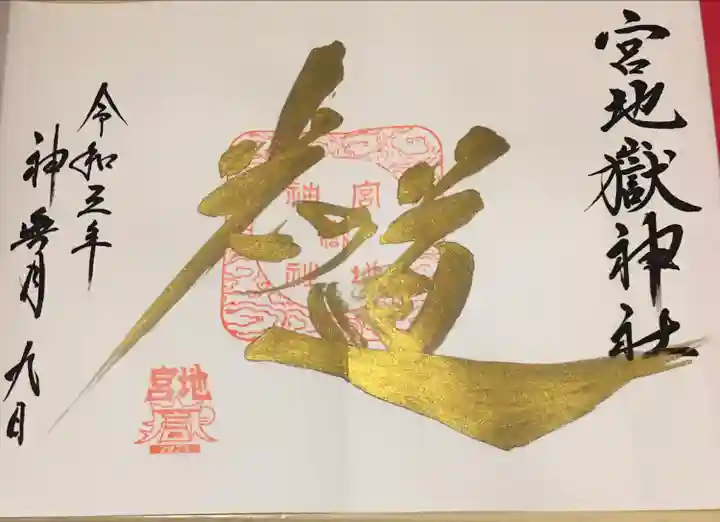 宮地嶽神社
光の道
宮地
嶽
神社
令和三年
神無月 九日
宮地
嶽